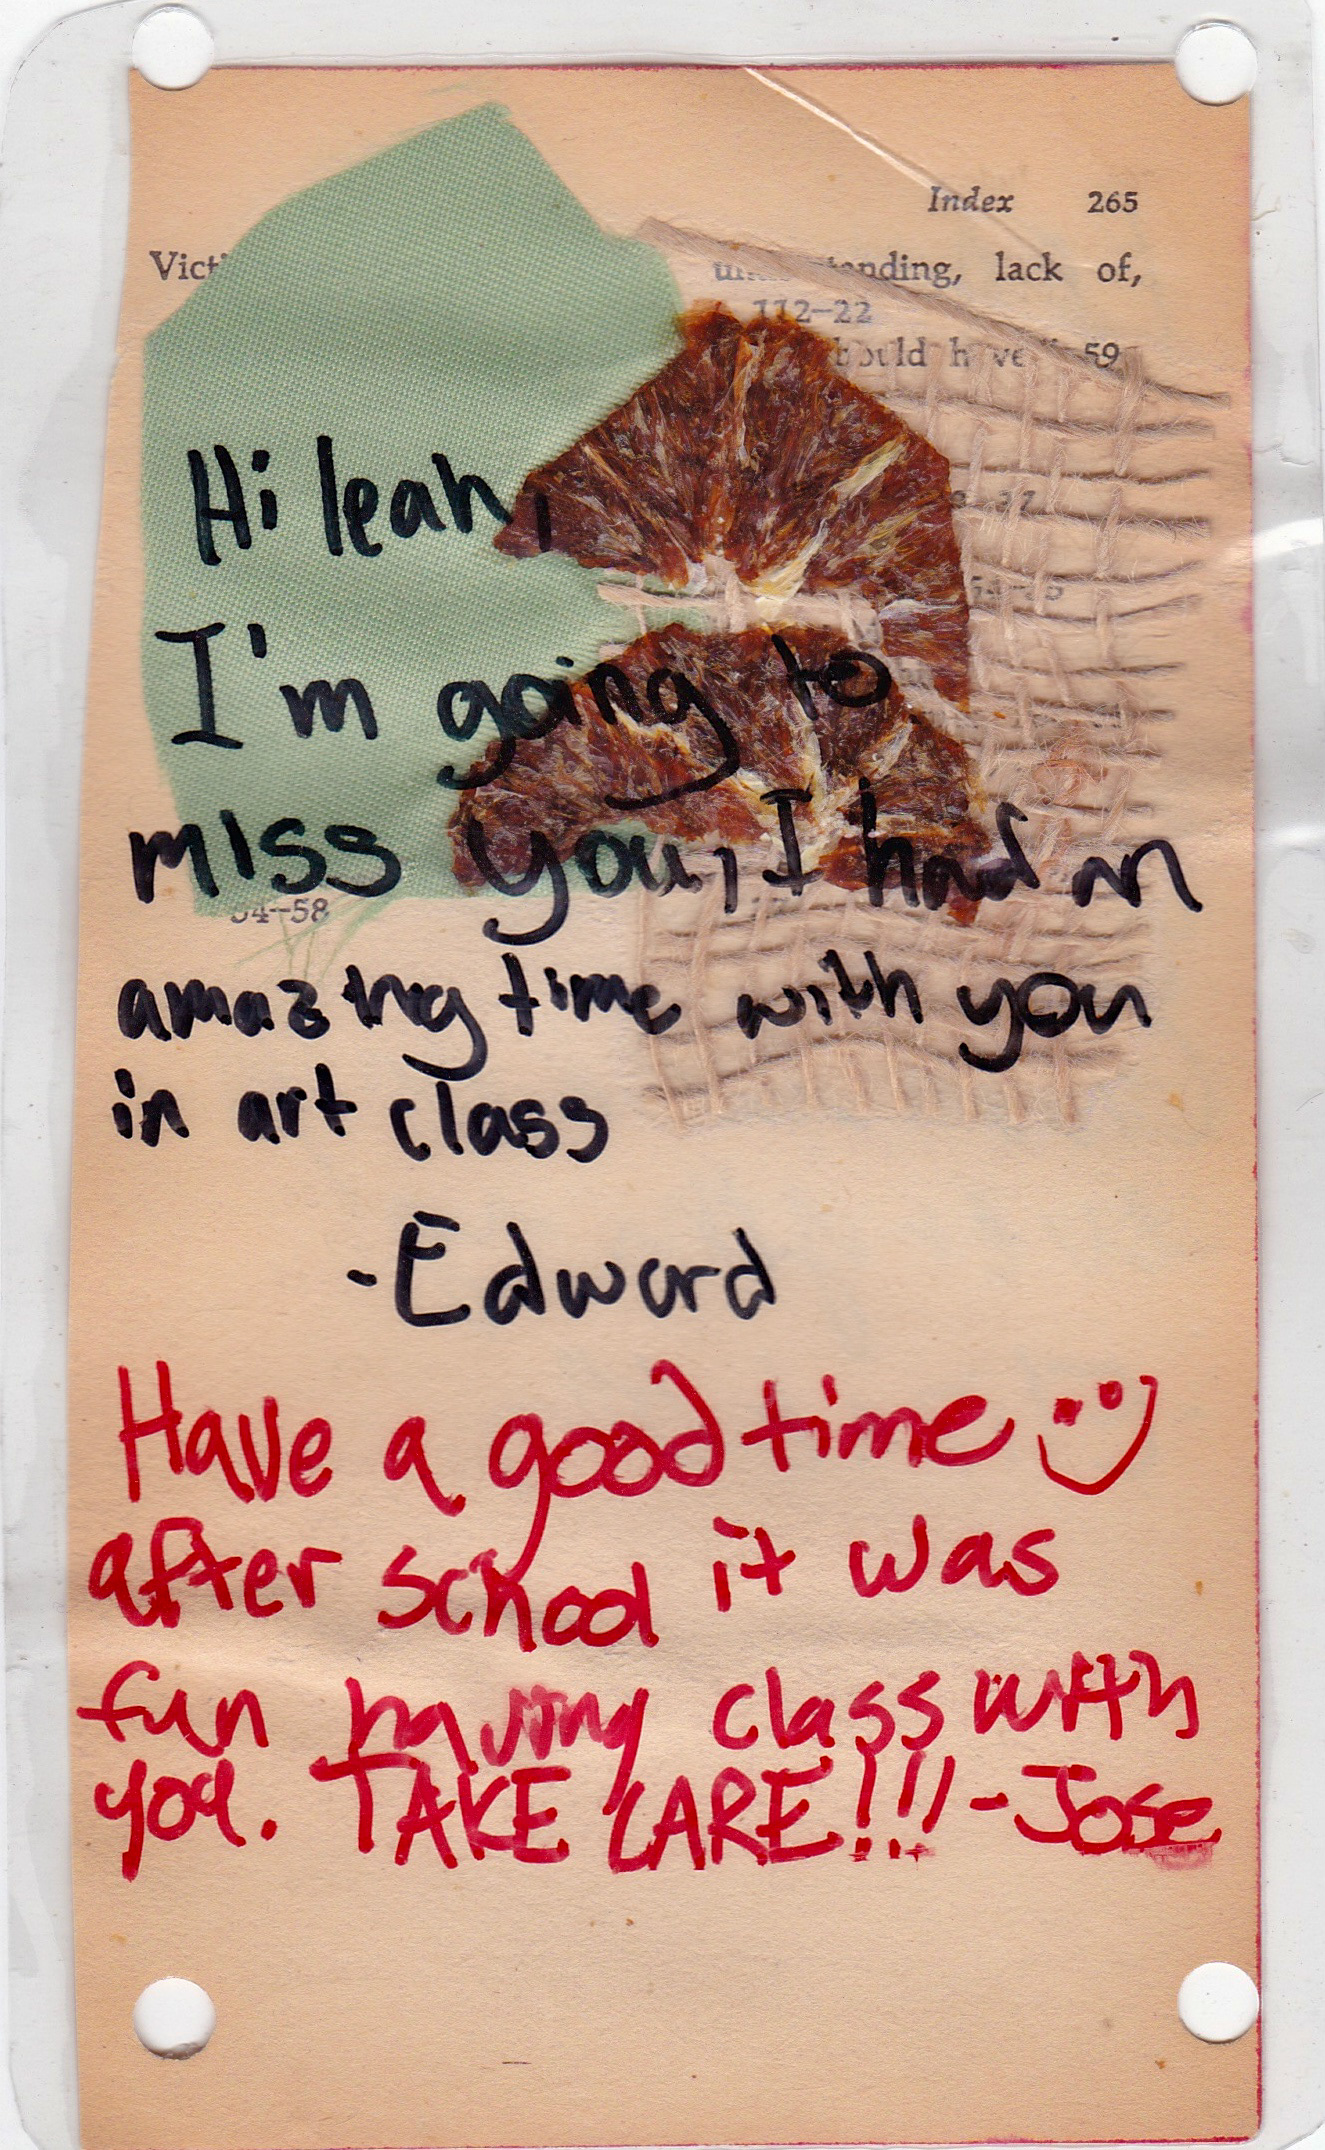 Index 265
Victi
anding, lack of,
112–22
59
Hi leah,
I'm going to
miss you, I had an
54–58
amazing time with you
in art class
-Edward
Have a good time :)
after school it was
fun having class with
you. TAKE CARE!!! -Jose